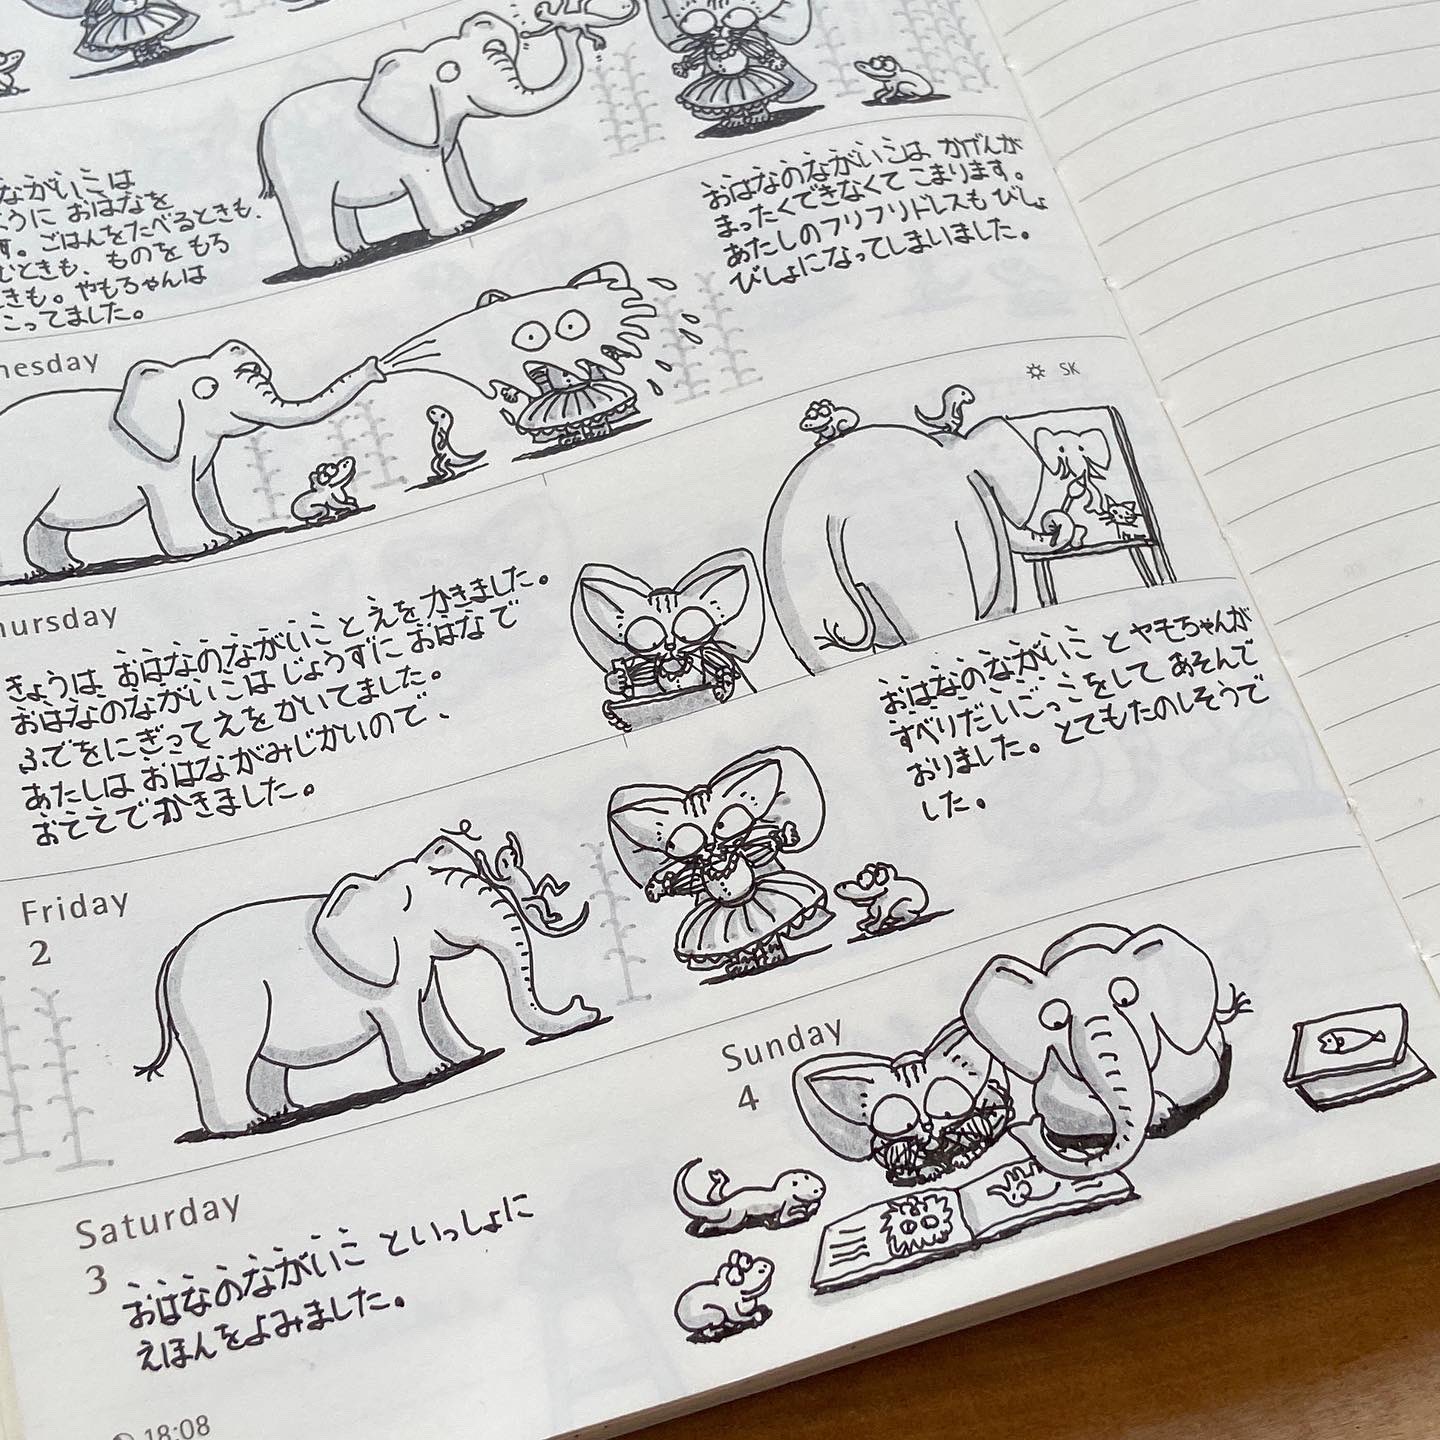 ながいこは
うに おはなを
す。ごはんをたべるときも、
むときも、ものをもろ
ときも。やもちゃんは
こってました。
おはなのながいこは かげんが
まったくできなくて こまります。
あたしのフリフリドレスも びしょ
びしょになってしまいました。
nesday
SK
hursday
きょうは、おはなのながいこ と えを かきました。
おはなのながいこは じょうずに おはなで
ふでをにぎって えを かいてました。
あたしは おはながみじかいので、
おててで かきました。
おはなのながいこ と ヤモちゃんが
すべりだいごっこをして あそんで
おりました。とてもたのしそうで
した。
Friday
2
Saturday
3
おはなのながいこ といっしょに
えほんをよみました。
Sunday
4
18:08